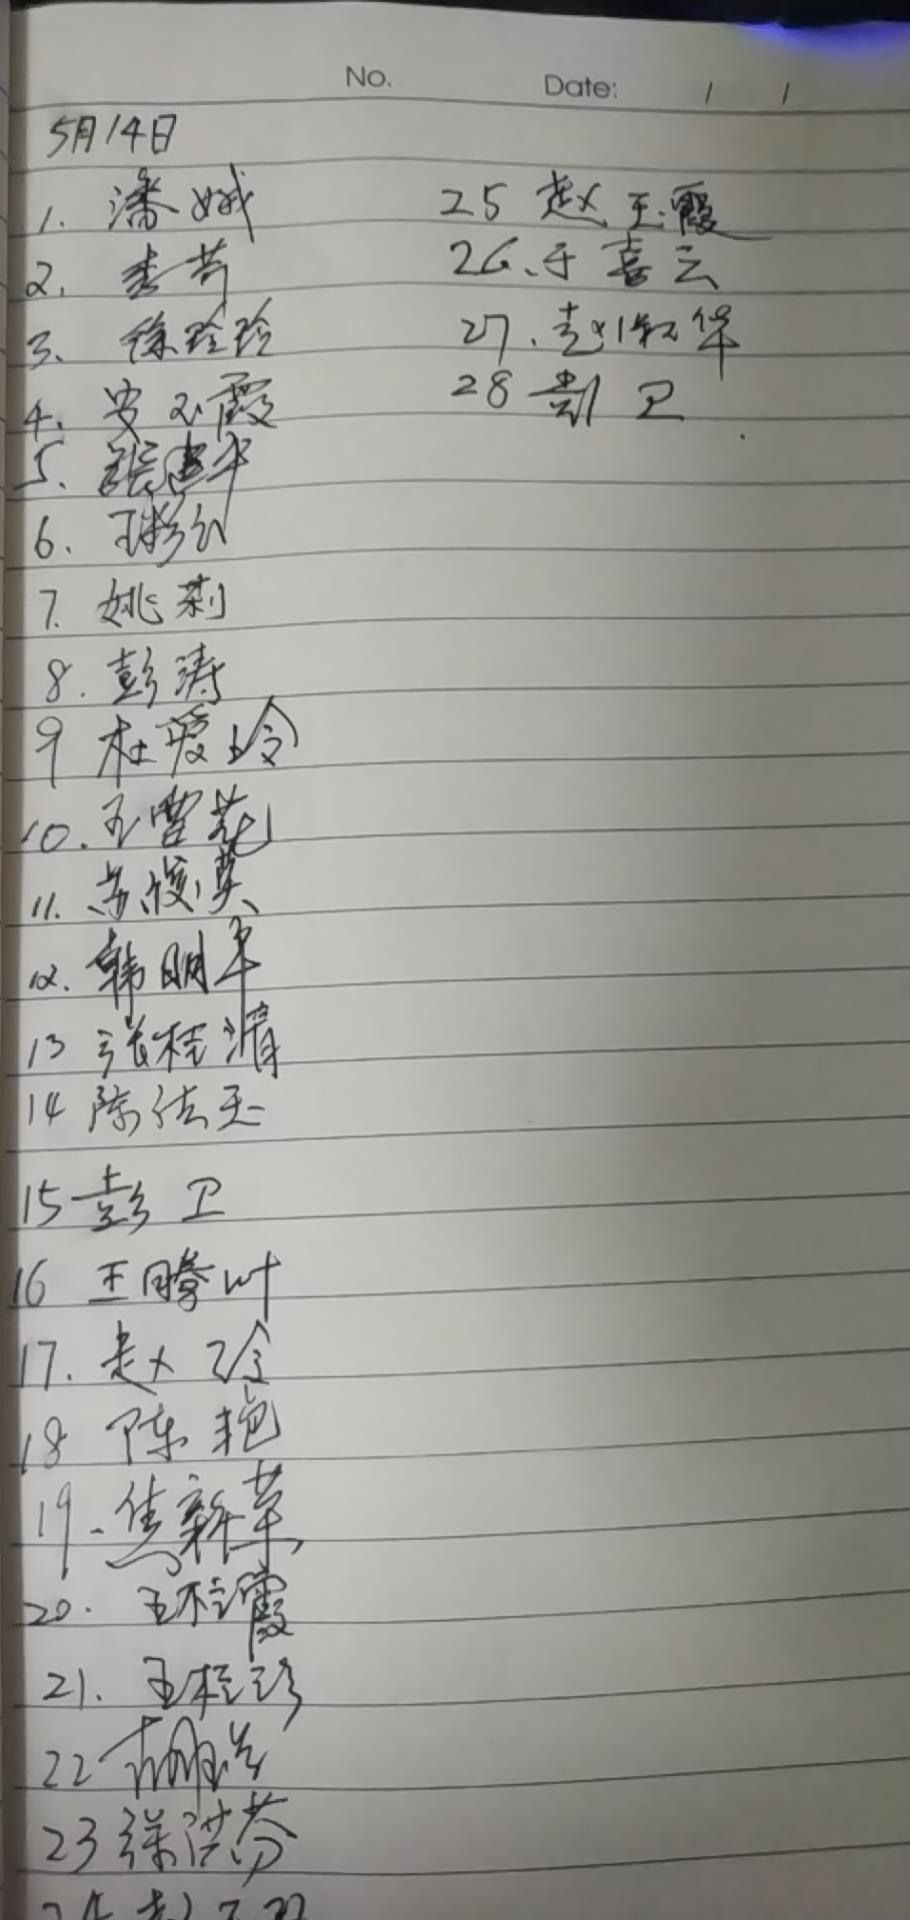 No. Date: / /
5月14日
1. 潘娥
2. 李芳
3. 徐玲玲
4. 安玉霞
5. 张建平
6. 王彩
7. 姚莉
8. 彭涛
9 杜爱玲
10. 王雪苑
11. 苏俊英
12. 韩明军
13 张桂清
14 陈佶玉
15 彭卫
16 王腾叶
17. 赵玲
18 陈艳
19. 焦新草
20. 王桂霞
21. 王桂珍
22 胡
23 张洪芬
24
25 赵玉霞
26. 于喜云
27. 赵淑华
28 彭卫